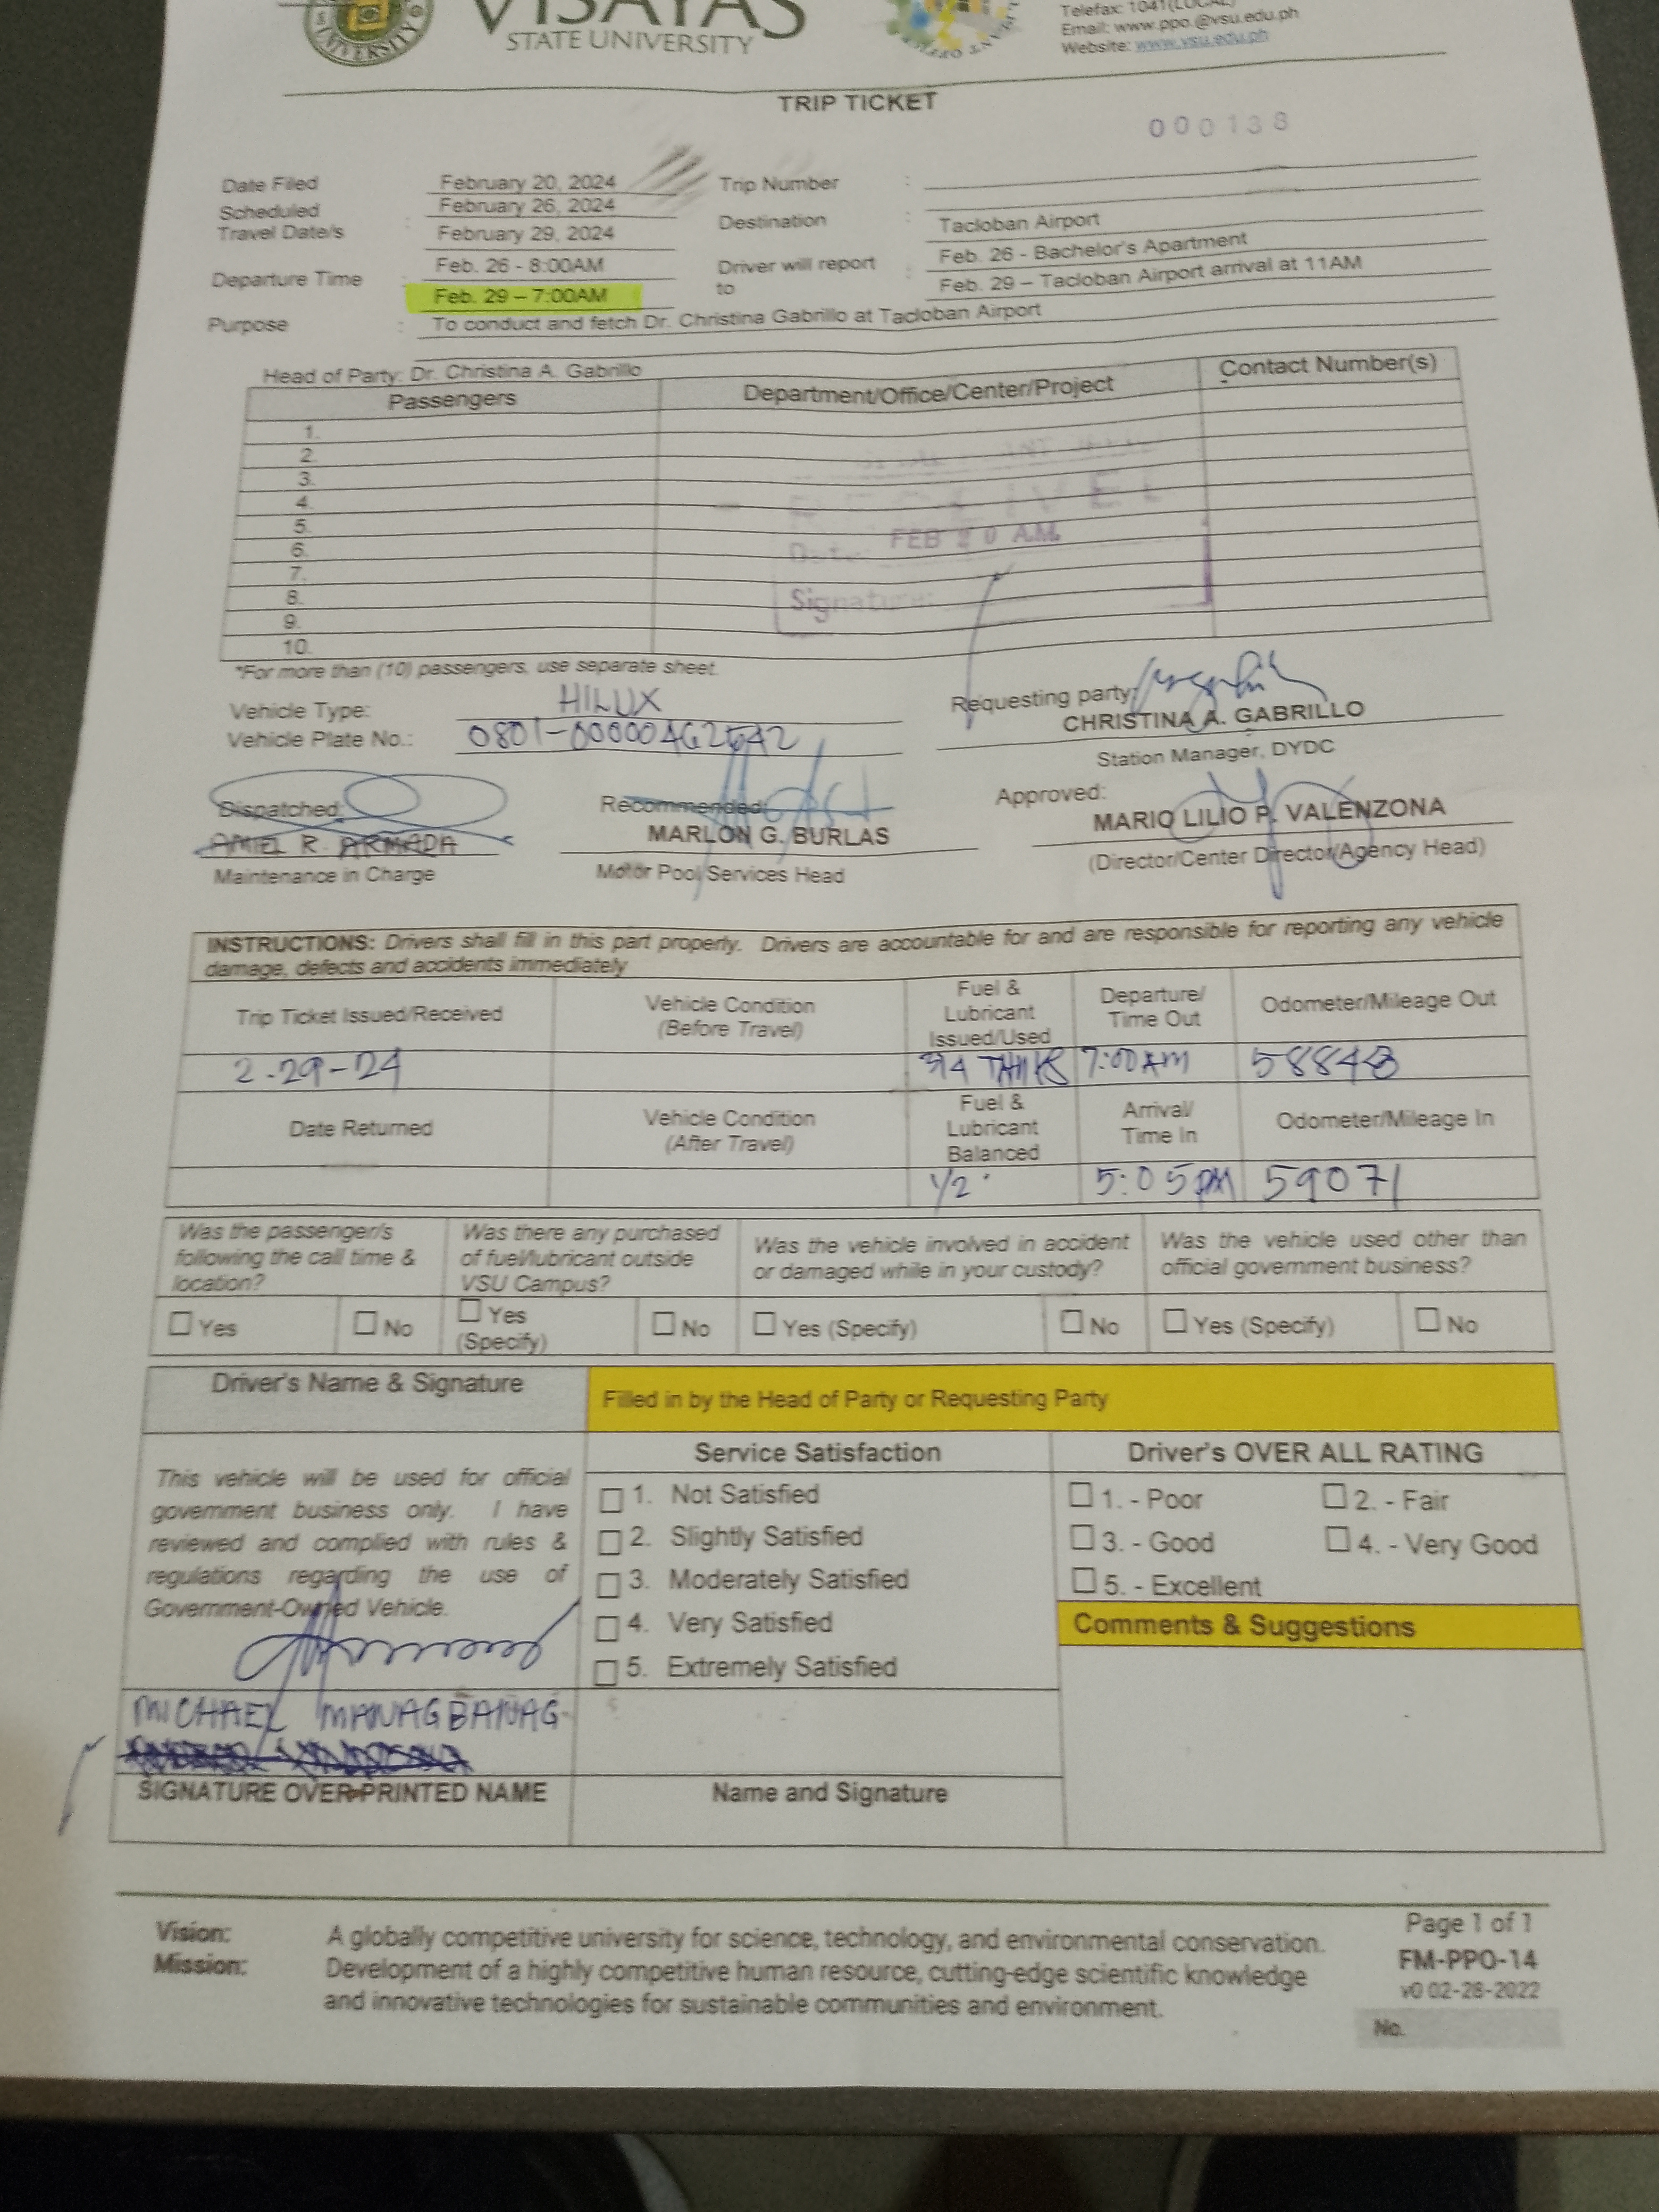 VISAYAS
STATE UNIVERSITY
UNIVERSITY
Telefax: 1041(LOCAL)
Email: www.ppo.@vsu.edu.ph
Website: www.vsu.edu.ph
TRIP TICKET
000138
Date Filed February 20, 2024 Trip Number :
Scheduled Travel Date/s : February 26, 2024
February 29, 2024 Destination : Tacloban Airport
Departure Time : Feb. 26 - 8:00AM Driver will report to : Feb. 26 - Bachelor's Apartment
Feb. 29 – 7:00AM Feb. 29 – Tacloban Airport arrival at 11AM
Purpose : To conduct and fetch Dr. Christina Gabrillo at Tacloban Airport
Head of Party: Dr. Christina A. Gabrillo
Passengers Department/Office/Center/Project Contact Number(s)
1.
2.
3.
4.
5.
6.
7.
8.
9.
10.
RECEIVED
Date: FEB 20 A.M.
Signature:
*For more than (10) passengers, use separate sheet.
Vehicle Type: HILUX
Vehicle Plate No.:
Requesting party:
CHRISTINA A. GABRILLO
Station Manager, DYDC
Dispatched: Recommended: Approved:
R. ARMADA MARLON G. BURLAS MARIO LILIO P. VALENZONA
Maintenance in Charge Motor Pool Services Head (Director/Center Director/Agency Head)
INSTRUCTIONS: Drivers shall fill in this part properly. Drivers are accountable for and are responsible for reporting any vehicle
damage, defects and accidents immediately
Trip Ticket Issued/Received Vehicle Condition (Before Travel) Fuel & Lubricant Issued/Used Departure/ Time Out Odometer/Mileage Out
2-29-24 3/4 7:00AM 58848
Date Returned Vehicle Condition (After Travel) Fuel & Lubricant Balanced Arrival/ Time In Odometer/Mileage In
1/2 5:05PM 59071
Was the passenger/s following the call time & location? Was there any purchased of fuel/lubricant outside VSU Campus? Was the vehicle involved in accident or damaged while in your custody? Was the vehicle used other than official government business?
Yes No Yes (Specify) No Yes (Specify) No Yes (Specify) No
Driver's Name & Signature Filled in by the Head of Party or Requesting Party
Service Satisfaction Driver's OVER ALL RATING
This vehicle will be used for official
government business only. I have
reviewed and complied with rules &
regulations regarding the use of
Government-Owned Vehicle.
1. Not Satisfied
2. Slightly Satisfied
3. Moderately Satisfied
4. Very Satisfied
5. Extremely Satisfied
1. - Poor 2. - Fair
3. - Good 4. - Very Good
5. - Excellent
Comments & Suggestions
MICHAEL MANAGBANAG
SIGNATURE OVER PRINTED NAME Name and Signature
Vision: A globally competitive university for science, technology, and environmental conservation.
Mission: Development of a highly competitive human resource, cutting-edge scientific knowledge
and innovative technologies for sustainable communities and environment.
Page 1 of 1
FM-PPO-14
v0 02-28-2022
No.